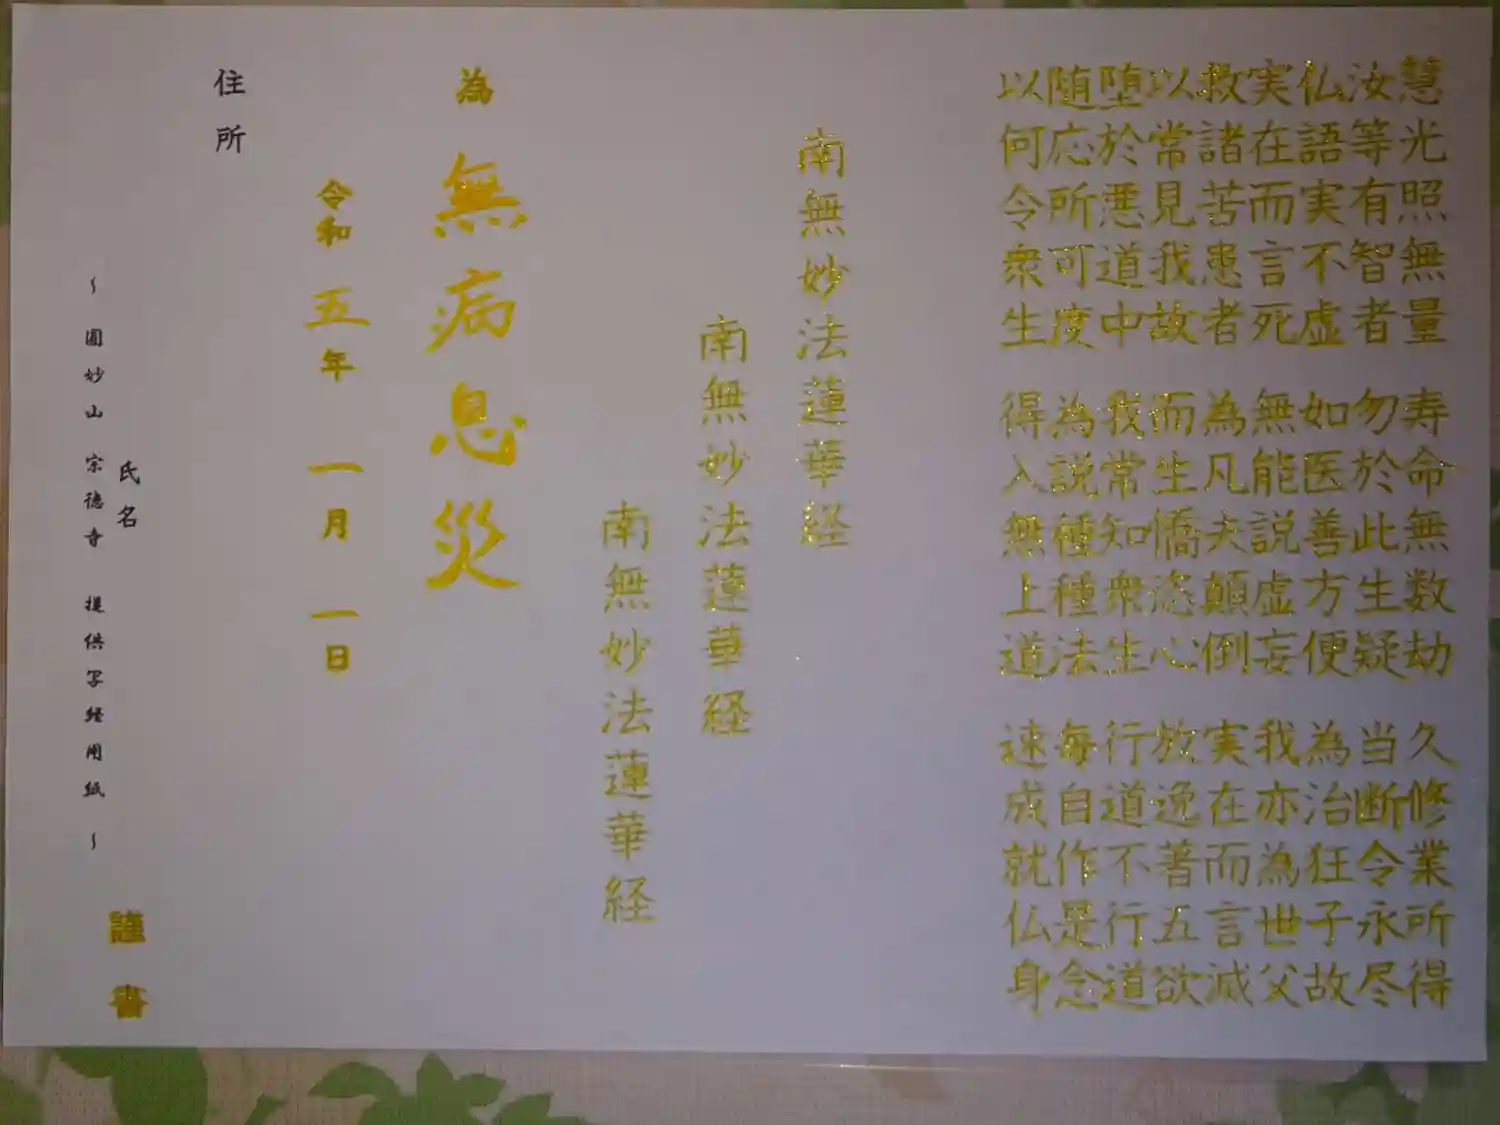 慧光照無量 寿命無数劫 久修業所得
汝等有智者 勿於此生疑 当断令永尽
仏語実不虚 如医善方便 為治狂子故
実在而言死 無能説虚妄 我亦為世父
救諸苦患者 為凡夫顛倒 実在而言滅
以常見我故 而生憍恣心 放逸著五欲
堕於悪道中 我常知衆生 行道不行道
随応所可度 為説種種法 毎自作是念
以何令衆生 得入無上道 速成就仏身
南無妙法蓮華経
南無妙法蓮華経
南無妙法蓮華経
為 無病息災
令和 五年 一月 一日
住所
氏名 謹書
~ 圓妙山 宗徳寺 提供写経用紙 ~